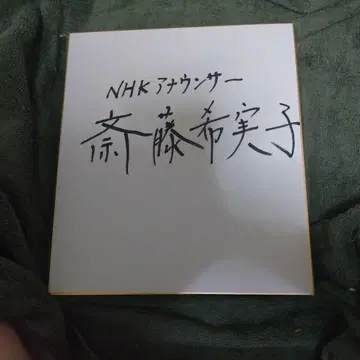 NHK アナウンサー
斎藤希実子